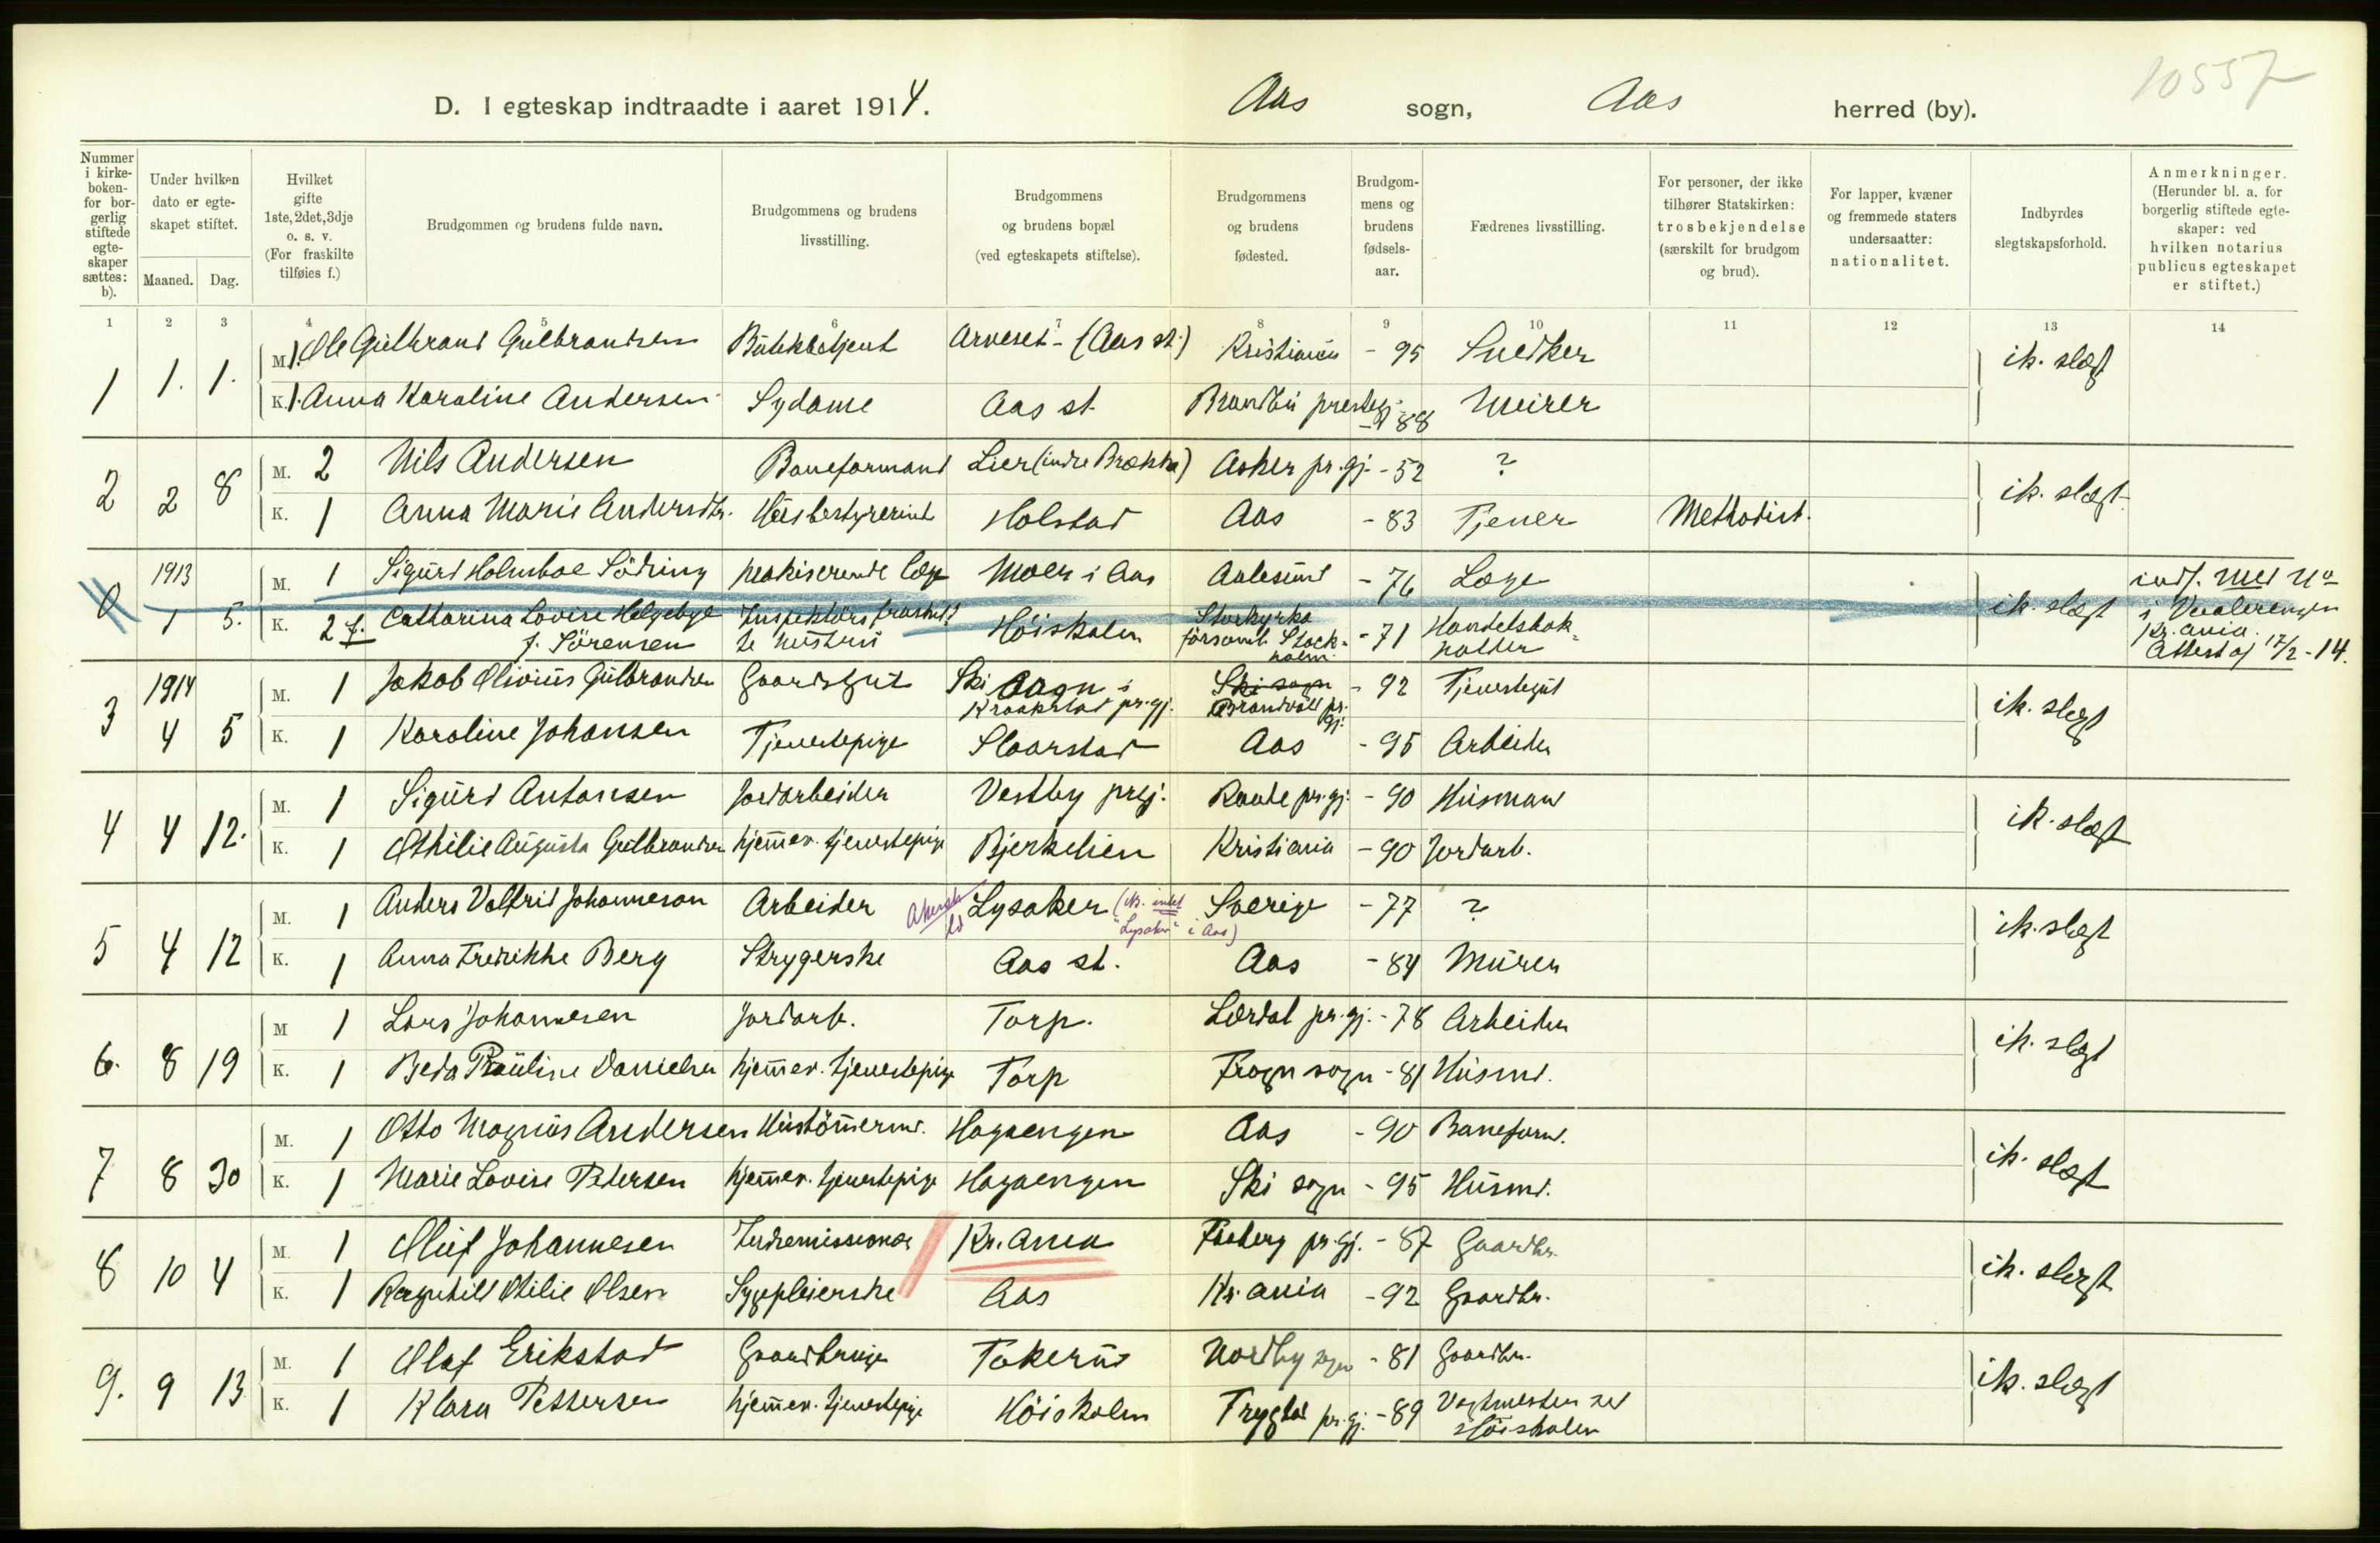 10557
D. I egteskap indtraadte i aaret 1914. Aas sogn, Aas herred (by).
Nummer i kirkeboken- for borgerlig stiftede egteskaper sættes: b).
Under hvilken dato er egteskapet stiftet.
Maaned. Dag.
Hvilket gifte 1ste, 2det, 3dje o. s. v. (For fraskilte tilføies f.)
Brudgommen og brudens fulde navn.
Brudgommens og brudens livsstilling.
Brudgommens og brudens bopæl (ved egteskapets stiftelse).
Brudgommens og brudens fødested.
Brudgommens og brudens fødselsaar.
Fædrenes livsstilling.
For personer, der ikke tilhører Statskirken: trosbekjendelse (særskilt for brudgom og brud).
For lapper, kvæner og fremmede staters undersaatter: nationalitet.
Indbyrdes slegtskapsforhold.
Anmerkninger. (Herunder bl. a. for borgerlig stiftede egteskaper: ved hvilken notarius publicus egteskapet er stiftet.)
1 2 3 4 5 6 7 8 9 10 11 12 13 14
1 1. 1. M. 1. Ole Gulbrand Gulbrandsen Butikbetjent Arneset - (Aas st.) Kristiania - 95 Snedker ik. slægt
K. 1. Anna Karoline Andersen Sydame Aas st. Brandbu prestegj. - 88 Murer
2 2 8 M. 2 Nils Andersen Baneformand Lier (indre Brækka) Asker pr.gj. - 52 ? ik. slægt
K. 1 Anna Marie Andersdtr. Husbestyrerinde Holstad Aas - 83 Tjener Methodist.
0 1913 1 5. M. 1 Sigurd Holmboe Södring praktiserende læge Moer i Aas Aalesund - 76 Læge ik. slægt
K. 2 f. Catharina Lovise Helgebye f. Sörensen Inspektörs fraskilte hustru Höiskolen Storkyrko församl. Stockholm - 71 Handelsbokholder
indf. med No i Vaalerengen Kr.ania. Attest af 17/2 - 14.
3 1914 4 5 M. 1 Jakob Olivius Gulbrandsen Gaardsgut Ski sogn i Kraakstad pr.gj. Ski sogn Brandvold pr.gj. - 92 Tjenestegut ik. slegt
K. 1 Karoline Johansen Tjenestepige Slaarstad Aas - 95 Arbeider
4 4 12. M. 1 Sigurd Antonsen Jordarbeider Vestby prgj. Raade pr.gj. - 90 Husmand ik. slægt
K. 1 Othilie Augusta Gulbrandsen hjemmev. tjenestepige Bjerkelien Kristiania - 90 Jordarb.
5 4 12 M. 1 Anders Valfrid Johanneson Arbeider Akershus Lysaker (NB. intet "Lysaker" i Aas) Sverige - 77 ? ik. slægt
K. 1 Anna Fredrikke Berg Strygerske Aas st. Aas - 84 Murer
6. 8 19 M 1 Lars Johannesen Jordarb. Torp. Lærdal pr.gj. - 78 Arbeider ik. slægt
K. 1 Beda Pauline Danielsen hjemmev. tjenestepige Torp Frogn sogn - 81 Husmd.
7 8 30 M. 1 Otto Magnus Andersen Hustömermd. Hagaengen Aas - 90 Baneformd. ik. slægt
K. 1 Marie Lovise Petersen hjemmev. tjenestepige Hagaengen Ski sogn - 95 Husmd.
8 10 4 M. 1 Oluf Johannesen Indremissionær Kr.ania Faaberg pr.gj. - 87 Gaardbr. ik. slegt
K. 1 Ragnhild Otilie Olsen Sygepleierske Aas Kr.ania - 92 Gaardbr.
9. 9 13 M. 1 Olaf Erikstad Gaardbruger Takerud Nordby sogn - 81 Gaardbr. ik. slægt
K. 1 Klara Pettersen hjemmev. tjenestepige Höiskolen Trygstad pr.gj. - 89 Vagtmester ved Höiskolen